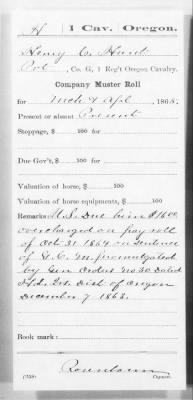 H | 1 Cav. | Oregon.
Henry C. Hunt
Pvt, Co. G, 1 Reg't Oregon Cavalry.
Company Muster Roll
for Mch & Apl, 1865.
Present or absent Present
Stoppage, $ 100 for
Due Gov't, $ 100 for
Valuation of horse, $ 100
Valuation of horse equipments, $ 100
Remarks: U.S. Due him $16.00
overcharged on pay roll
of Oct. 31 1864 on sentence
of G. C. M. promulgated
by Gen Orders No 30 Dated
Hd. Qrs. Dist of Oregon
December 7 1863.
Book mark:
Copyist.